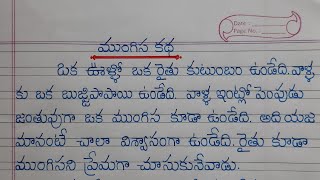 Date :
Page No. :
ముంగిస కథ
ఒక ఊళ్ళో ఒక రైతు కుటుంబం ఉండేది. వాళ్ళ
కు ఒక బుజ్జిపాపాయి ఉండేది. వాళ్ల ఇంట్లో పెంపుడు
జంతువుగా ఒక ముంగిస కూడా ఉండేది. అది యజ
మానంటే చాలా విశ్వాసంగా ఉండేది. రైతు కూడా
ముంగిసని ప్రేమగా చూసుకునేవాడు.